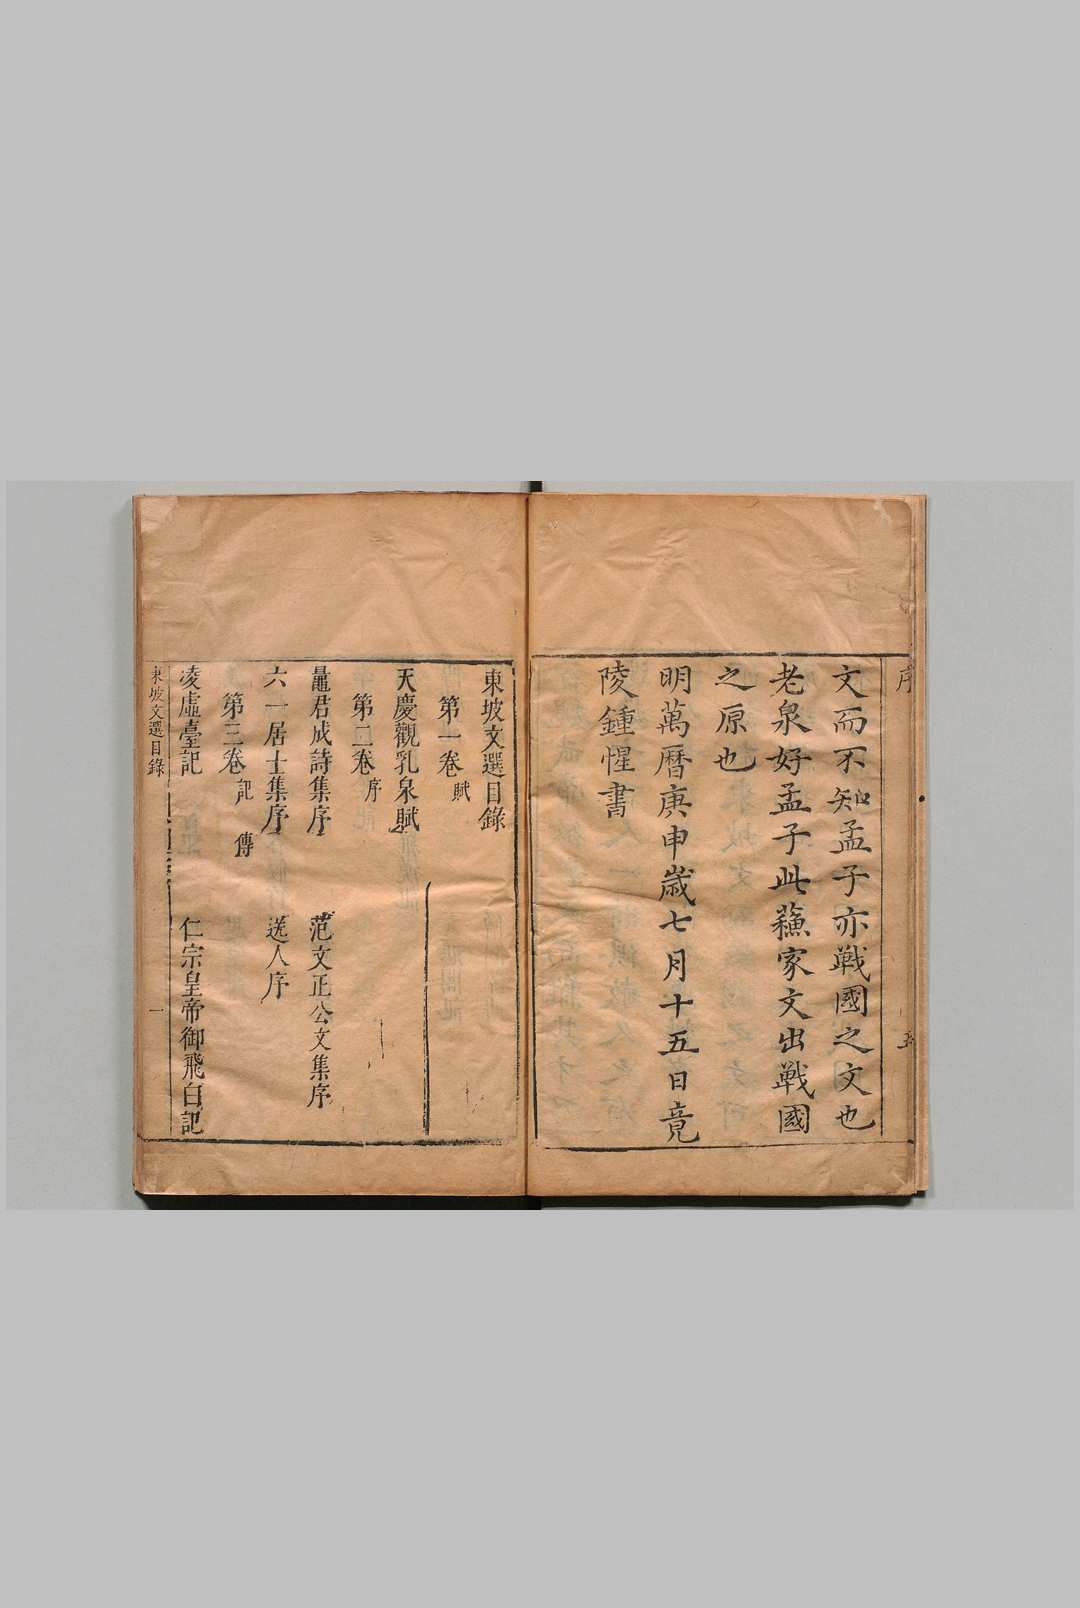 序
五
文而不知孟子亦戰國之文也
老泉好孟子此蘓家文出戰國
之原也
明萬曆庚申歲七月十五日竟
陵鍾惺書
東坡文選目錄
第一卷 賦
天慶觀乳泉賦
第二卷 序
鼂君成詩集序 范文正公文集序
六一居士集序 送人序
第三卷 記 傳
凌虛臺記 仁宗皇帝御飛白記
東坡文選目錄 一